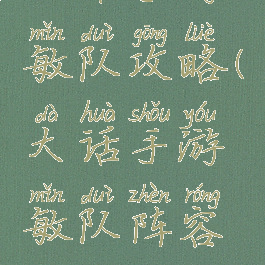 mǐn duì gōng lüè
敏队攻略(
dà huà shǒu yóu
大话手游
mǐn duì zhèn róng
敏队阵容